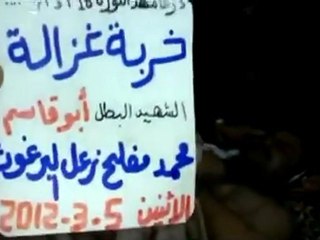 خربة غزالة
الشهيد البطل أبو قاسم
محمد مفلح زعل البرغوث
الاثنين 5-3-2012